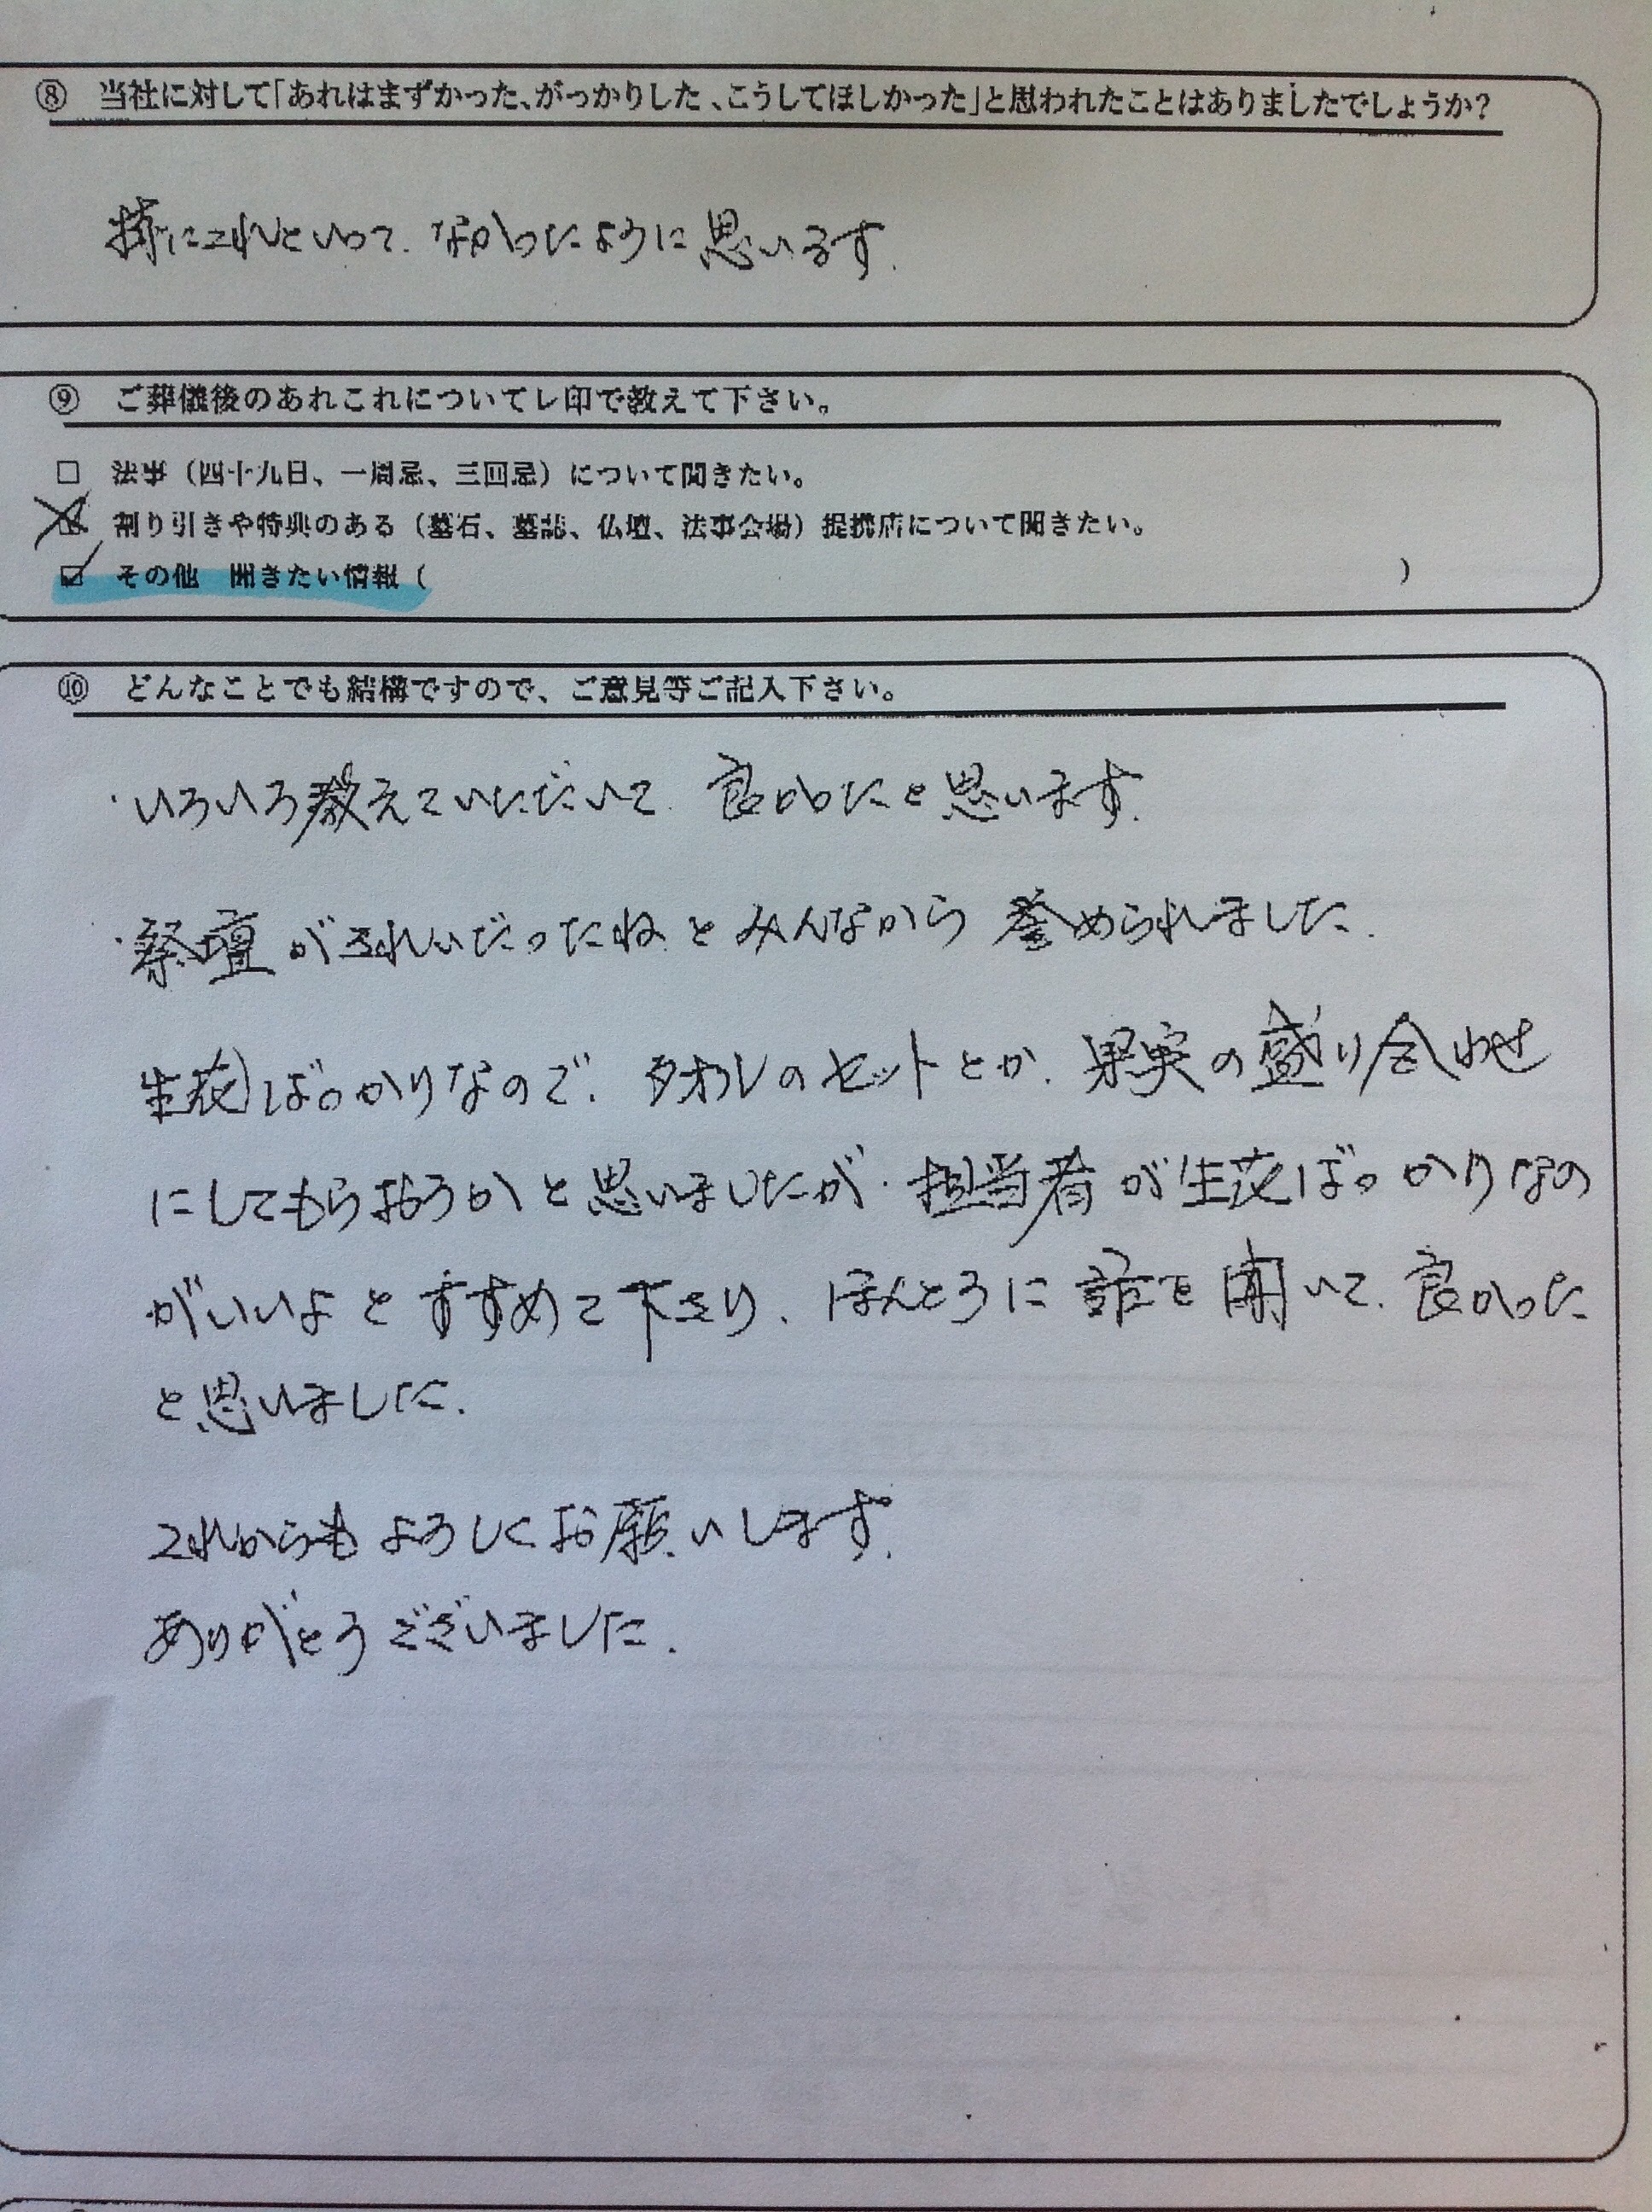 ⑧ 当社に対して「あれはまずかった、がっかりした、こうしてほしかった」と思われたことはありましたでしょうか?
特にこれといって、なかったように思います。
⑨ ご葬儀後のあれこれについてレ印で教えて下さい。
□ 法事（四十九日、一周忌、三回忌）について聞きたい。
☑ 割り引きや特典のある（墓石、墓誌、仏壇、法事会場）提携店について聞きたい。
☑ その他 聞きたい情報（ ）
⑩ どんなことでも結構ですので、ご意見等ご記入下さい。
・いろいろ教えていただいて、良かったと思います。
・祭壇がきれいだったねとみんなから誉められました。
生花ばっかりなので、タオルのセットとか、果実の盛り合わせ
にしてもらおうかと思いましたが、担当者が生花ばっかりなの
がいいよとすすめて下さり、ほんとうに話を聞いて、良かった
と思いました。
これからもよろしくお願いします。
ありがとうございました。